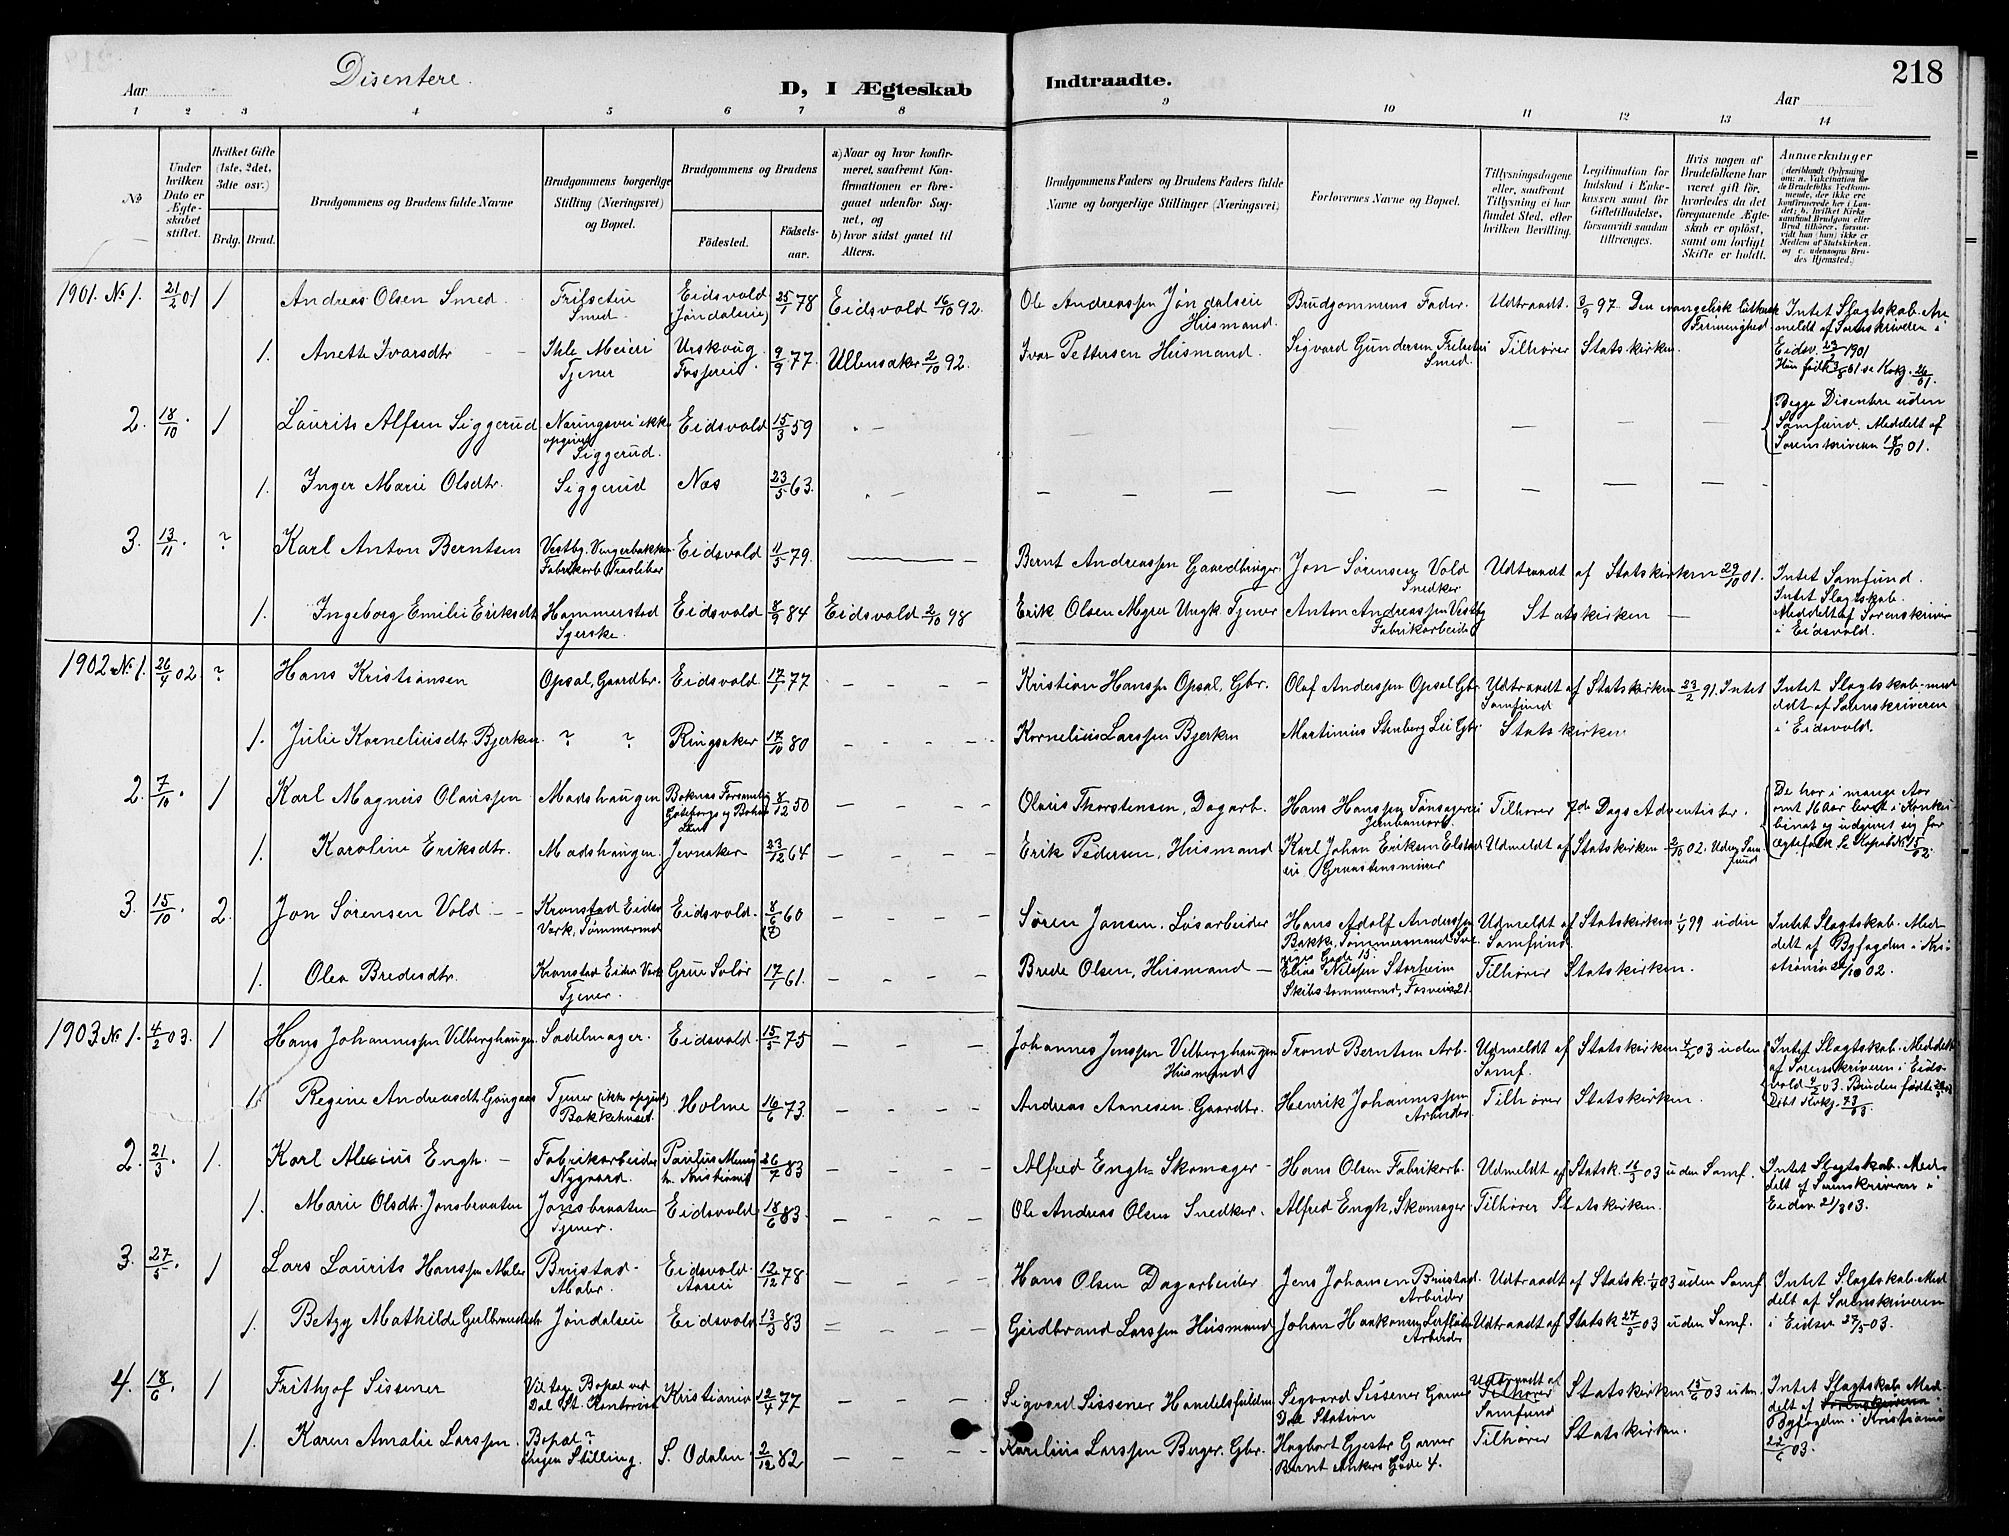 Disentere.
218
Aar
D, I Ægteskab
Indtraadte.
Aar
1 2 3 4 5 6 7 8 9 10 11 12 13 14
No
Under hvilken Dato er Ægteskabet stiftet.
Hvilket Gifte (1ste, 2det, 3die osv.)
Brdg. Brud.
Brudgommens og Brudens fulde Navne
Brudgommens borgerlige Stilling (Næringsvei) og Bopæl.
Brudgommens og Brudens
Fødested.
Fødselsaar.
a) Naar og hvor konfirmeret, saafremt Konfirmationen er foregaaet udenfor Sognet, og
b) hvor sidst gaaet til Alters.
Brudgommens Faders og Brudens Faders fulde Navne og borgerlige Stillinger (Næringsvei)
Forlovernes Navne og Bopæl.
Tillysningsdagene eller, saafremt Tillysning ei har fundet Sted, efter hvilken Bevilling.
Legitimation for Indskud i Enkekassen samt for Giftetilladelse, forsaavidt saadan tiltrænges.
Hvis nogen af Brudefolkene har været gift før, hvorledes da det foregaaende Ægteskab er opløst, samt om lovligt Skifte er holdt.
Anmerkninger (deriblandt Oplysning om: a. Vakcination for de Brudefolks Vedkommende, der ikke er konfirmerede her i Landet; b. hvilket Kirkesamfund Brudgom eller Brud tilhører, forsaavidt han (hun) ikke er Medlem af Statskirken, og c. udensogns Brudes Hjemsted.)
1901. No 1. 21/2 01 1 Andreas Olsen Smed. Smed. Eidsvold (Jøndalseie) 25/1 78 Eidsvold 16/10 92. Ole Andreassen Jøndalseie Husmand. Brudgommens Fader. Udtraadt. 3/9 97. Den evangelisk luthersk Frimenighed. Intet Slagtskab. Anmeldt af Sorenskriveren i Eidsv. 23/2 1901
1. Anette Ivarsdtr Ihle Meieri Tjener Urskoug 9/9 77. Ullensaker 2/10 92. Ivar Pettersen Husmand. Sigvard Gundersen Smed. Tilhører Statskirken.
2. 18/10. 1 Laurits Alfsen Siggerud Næringsvei ikke opgivet Siggerud. Eidsvold 15/3 59 Begge Disentere uden Samfund. Meddelt af Sorenskriveren 18/10 01.
1. Inger Marie Olsdtr. Siggerud Næs 23/5 63.
3. 13/11. ? Karl Anton Berntsen Fabrikarb. Eidsvold 11/5 79. Bernt Andreassen Gaardbruger. Jon Sørensen Vold Snedker Udtraadt af Statskirken 29/10 01. Intet Samfund. Intet Slagtskab. Meddelt af Sorenskriver i Eidsvold.
1. Ingeborg Emilie Eriksdtr Hammerstad Eidsvold 8/9 84 Eidsvold 2/10 98 Erik Olsen Myrer Ungk. Tjener Anton Andreassen Vestby Fabrikarbeider Statskirken
1902 No 1. 26/4 02 ? Hans Kristiansen Opsal, Gaardbr. Eidsvold. 17/1 77 Kristian Hanssen Opsal, Gbr. Olaf Anderssen Opsal Gbr Udtraadt af Statskirken 23/2 91. Intet Samfund Intet Slagtskab. meddelt af Sorenskriveren i Eidsvold.
1. Julie Korneliusdtr Bjerken ? ? Ringsaker 17/10 80 Kornelius Larssen Bjerken Martinius Stenberg Lei Gbr Statskirken
2. 7/10. 1 Karl Magnus Olaussen Madshaugen Göteborgs og Bohus Len 8/12 50 Olaus Thorstensen, Dagarb. Hans Hanssen Jernbanearb. Tilhører 7de Dags Adventister. De har i mange Aar omt 16 Aar levet i Konkubinat og udgivet sig for Ægtefolk
1. Karoline Eriksdtr. Madshaugen. Jevnaker 23/12 64 Erik Pedersen, Husmand Karl Johan Eriksen Elstad eie Graastensmurer Udmeldt af Statskirken 2/10 02. Uden Samfund
3. 15/10. 2. Jon Sørensen Vold Kronstad Eids. Værk, Tømmermd Eidsvold. 8/6 60 (?) Søren Jonsen. Løsarbeider Hans Adolf Anderssen Bakke, Tømmermand Gade 15. Udmeldt af Statskirken 1/4 99 uden Samfund. Intet Slagtskab. Meddelt af Byfogden i Kristiania 22/10 02.
1. Olea Bredesdtr. Kronstad Eids. Værk Tjener. Grue Solør 17/1 61. Brede Olsen, Husmand Elias Nilssen Storheim Skibstømmermd, Fosveien 21. Tilhører Statskirken.
1903. No 1. 4/2 03. 1 Hans Johannessen Vilberghaugen Sadelmager. Eidsvold. 15/5 75 Johannes Jenssen Vilberghaugen Husmand Trond Berntsen Arb. Udmeldt af Statskirken 4/2 03 uden Samf. Intet Slagtskab. Meddelt af Sorenskriveren i Eidsvold 4/2 03. Bruden fødte
1. Regine Andreasdtr Gaugaas Tjener (ikke opgivet) Bakkehuset. Holme 16/6 73. Andreas Aanesen Gaardbr. Henrik Johannessen Arbeider Tilhører Statskirken.
2. 21/3. 1. Karl Alexius Engh. Fabrikarbeider Nygaard. Paulus Menigh. Kristiania 26/7 83 Alfred Engh Skomager Hans Olsen Fabrikarb. Udmeldt af Statsk. 16/3 03 uden Samf. Intet Slagtskab. Meddelt af Sorenskriveren i Eidsv. 21/3 03.
1. Marie Olsdtr. Jonsbraaten Jonsbraaten Tjener. Eidsvold 18/6 83. Ole Andreas Olsen Snedker. Alfred Engh, Skomager. Tilhører Statskirken.
3. 27/5. 1 Lars Laurits Hanssen Maler Brustad Maler. Eidsvold. 12/12 78 Hans Olsen Dagarbeider Jens Johansen Brustad Arbeider Udtraadt af Statsk. 1/4 03 uden Samf. Intet Slagtskab. Meddelt af Sorenskriveren i Eidsv 27/5 03.
1. Betzy Mathilde Gulbrandsdtr Jøndalseie Eidsvold 13/3 83 Guldbrand Larssen Husmand Johan Haakonsen Arbeider Udtraadt af Statsk 27/5 03 uden Samf.
4. 18/6. 1 Frithjof Sissener Bopæl ved Dal St. Kontorist Kristiania 12/4 77 Sigvard Sissener Handelsfuldm Sigvard Sissener Garver Dal Station Udtraadt af Tilhører Statskirken 15/5 03 uden Samfund Intet Slagtskab. Meddelt af Sorenskriveren Byfogden i Kristiania 22/6 03.
1. Karen Amalie Larssen. Bopæl? Ingen Stilling. S. Odalen 2/12 82 Karelius Larssen Berger. Gbr. Hagbart Gjester Garver Bernt Ankers Gade 4. Tilhører Statskirken.